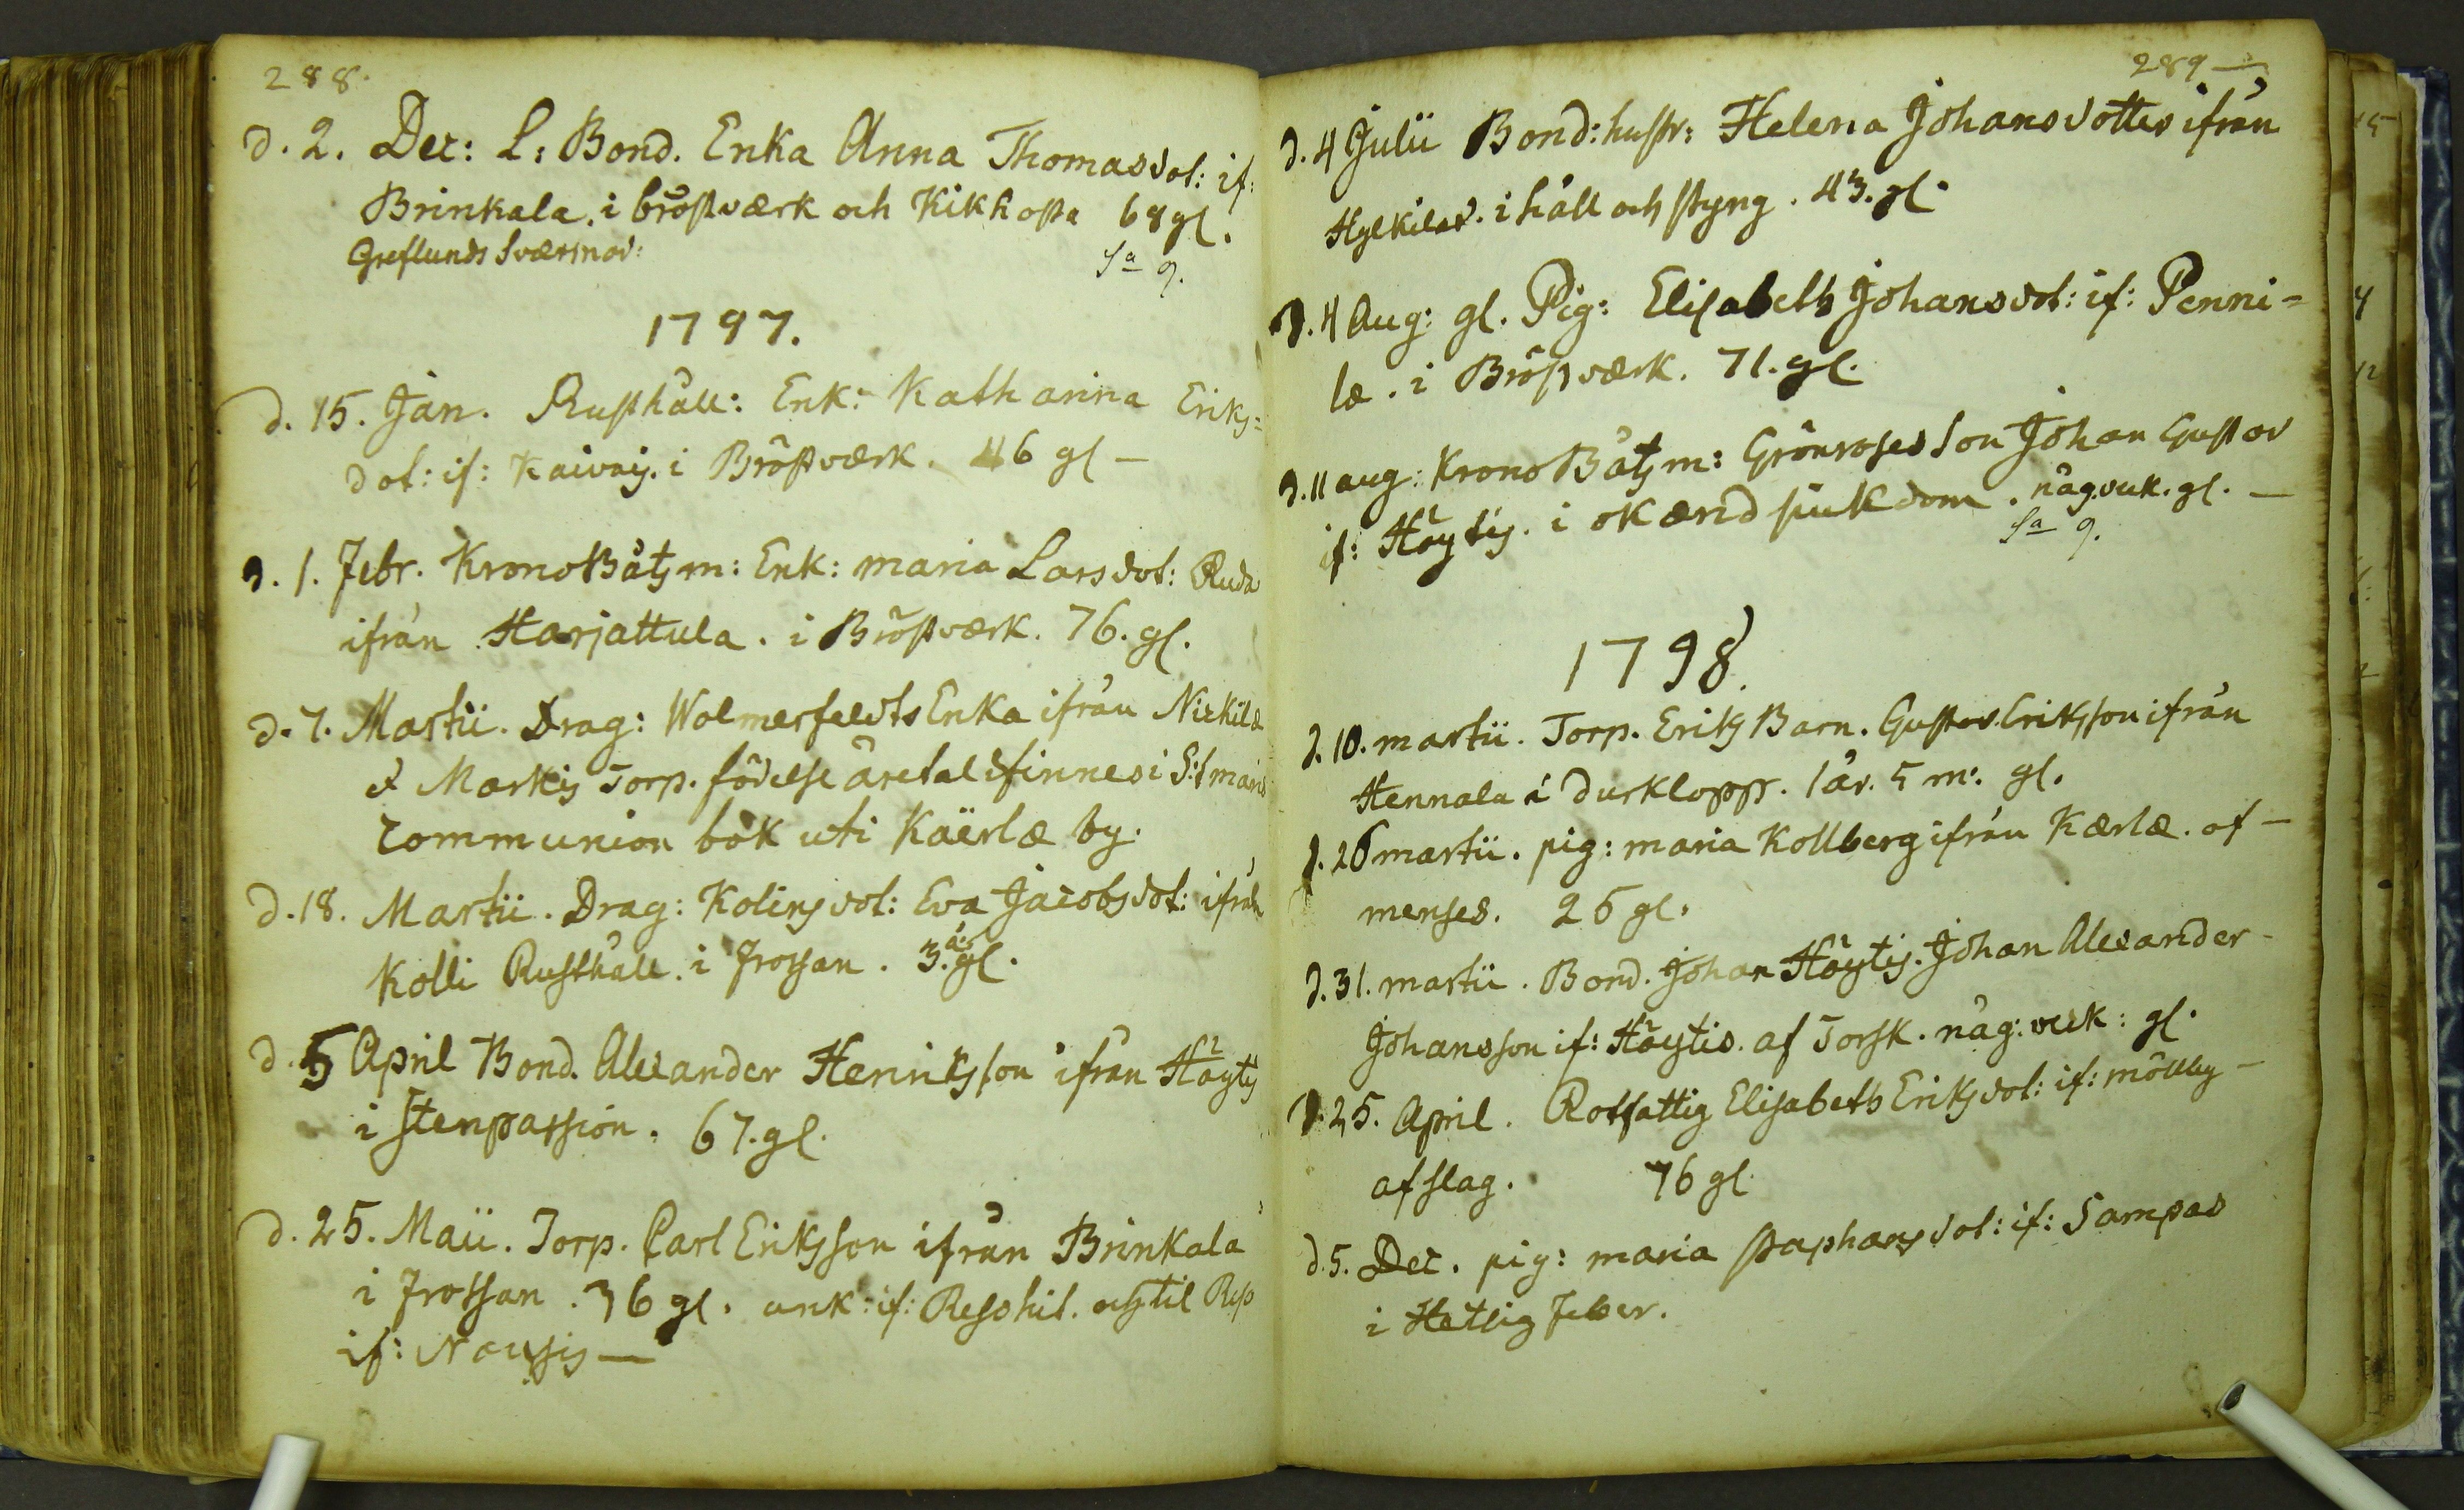 288.
d. 2. Dec: L: Bond. Enka Anna Thomasdot: if:
Brinkala. i bröstværk och Kikhosta 68 gl.
Greflunds Sværmod:
Sa 9.
1797.
d. 15. Jan. Rusthåll: Enk: Katharina Eriks=
dot: if: Kaivois. i Bröstværk. 46 gl —
d. 1. Febr. KronoBåtzm: Enk: maria Larsdot: Ruda
ifrån Harjattula. i Bröstværk. 76. gl.
d. 7. Martii. Drag: Wolmerfeldts Enka ifrån Nickilæ
& Markis Torp. födelse åretal finnes i S:t mariæ
Communion bok uti Käerlæ by.
d. 18. Martii. Drag: Kolins dot: Eva Jacobsdot: ifrån
Kolli Rusthåll. i Frossan. 3. år gl.
d. 5 April Bond. Alexander Henriksson ifrån Höytis
i Stenpassion. 67. gl.
d. 25. Maii. Torp. Carl Eriksson ifrån Brinkala
i Frossan. 36 gl. ank: if: Resohit. och til Reso
if: Nousis —
289 —
d. 4 Julii Bond: hustr: Helena Johansdotter ifrån
Hylkilæ. i håll och styng. 43. gl.
d. 4 Aug: gl. Pig: Elisabeth Johansdot: if: Penni=
læ. i Bröstværk. 71. gl.
d. 11 aug: KronoBåtzm: Grönroses Son Johan Gustav
if: Höytis. i okænd siukdom. någ. vuk. gl. —
Sa 9.
1798.
d. 10. martii. Torp. Eriks Barn. Gustav Eriksson ifrån
Hennala i durklopp. 1 år. 5 m: gl.
d. 26 martii. pig: maria Kollberg ifrån Kærlæ. of —
menses. 26 gl.
d. 31. martii. Bond. Johan Höytis. Johan Alexander
Johansson if: Höytis. af Torsk. någ: vek: gl.
d. 25. April. Rotfattig Elisabeth Eriksdot: if: möllby —
af slag. 76 gl.
d. 5. Dec. pig: maria Staphansdot: if: Sampas
i Hetsig Feber.